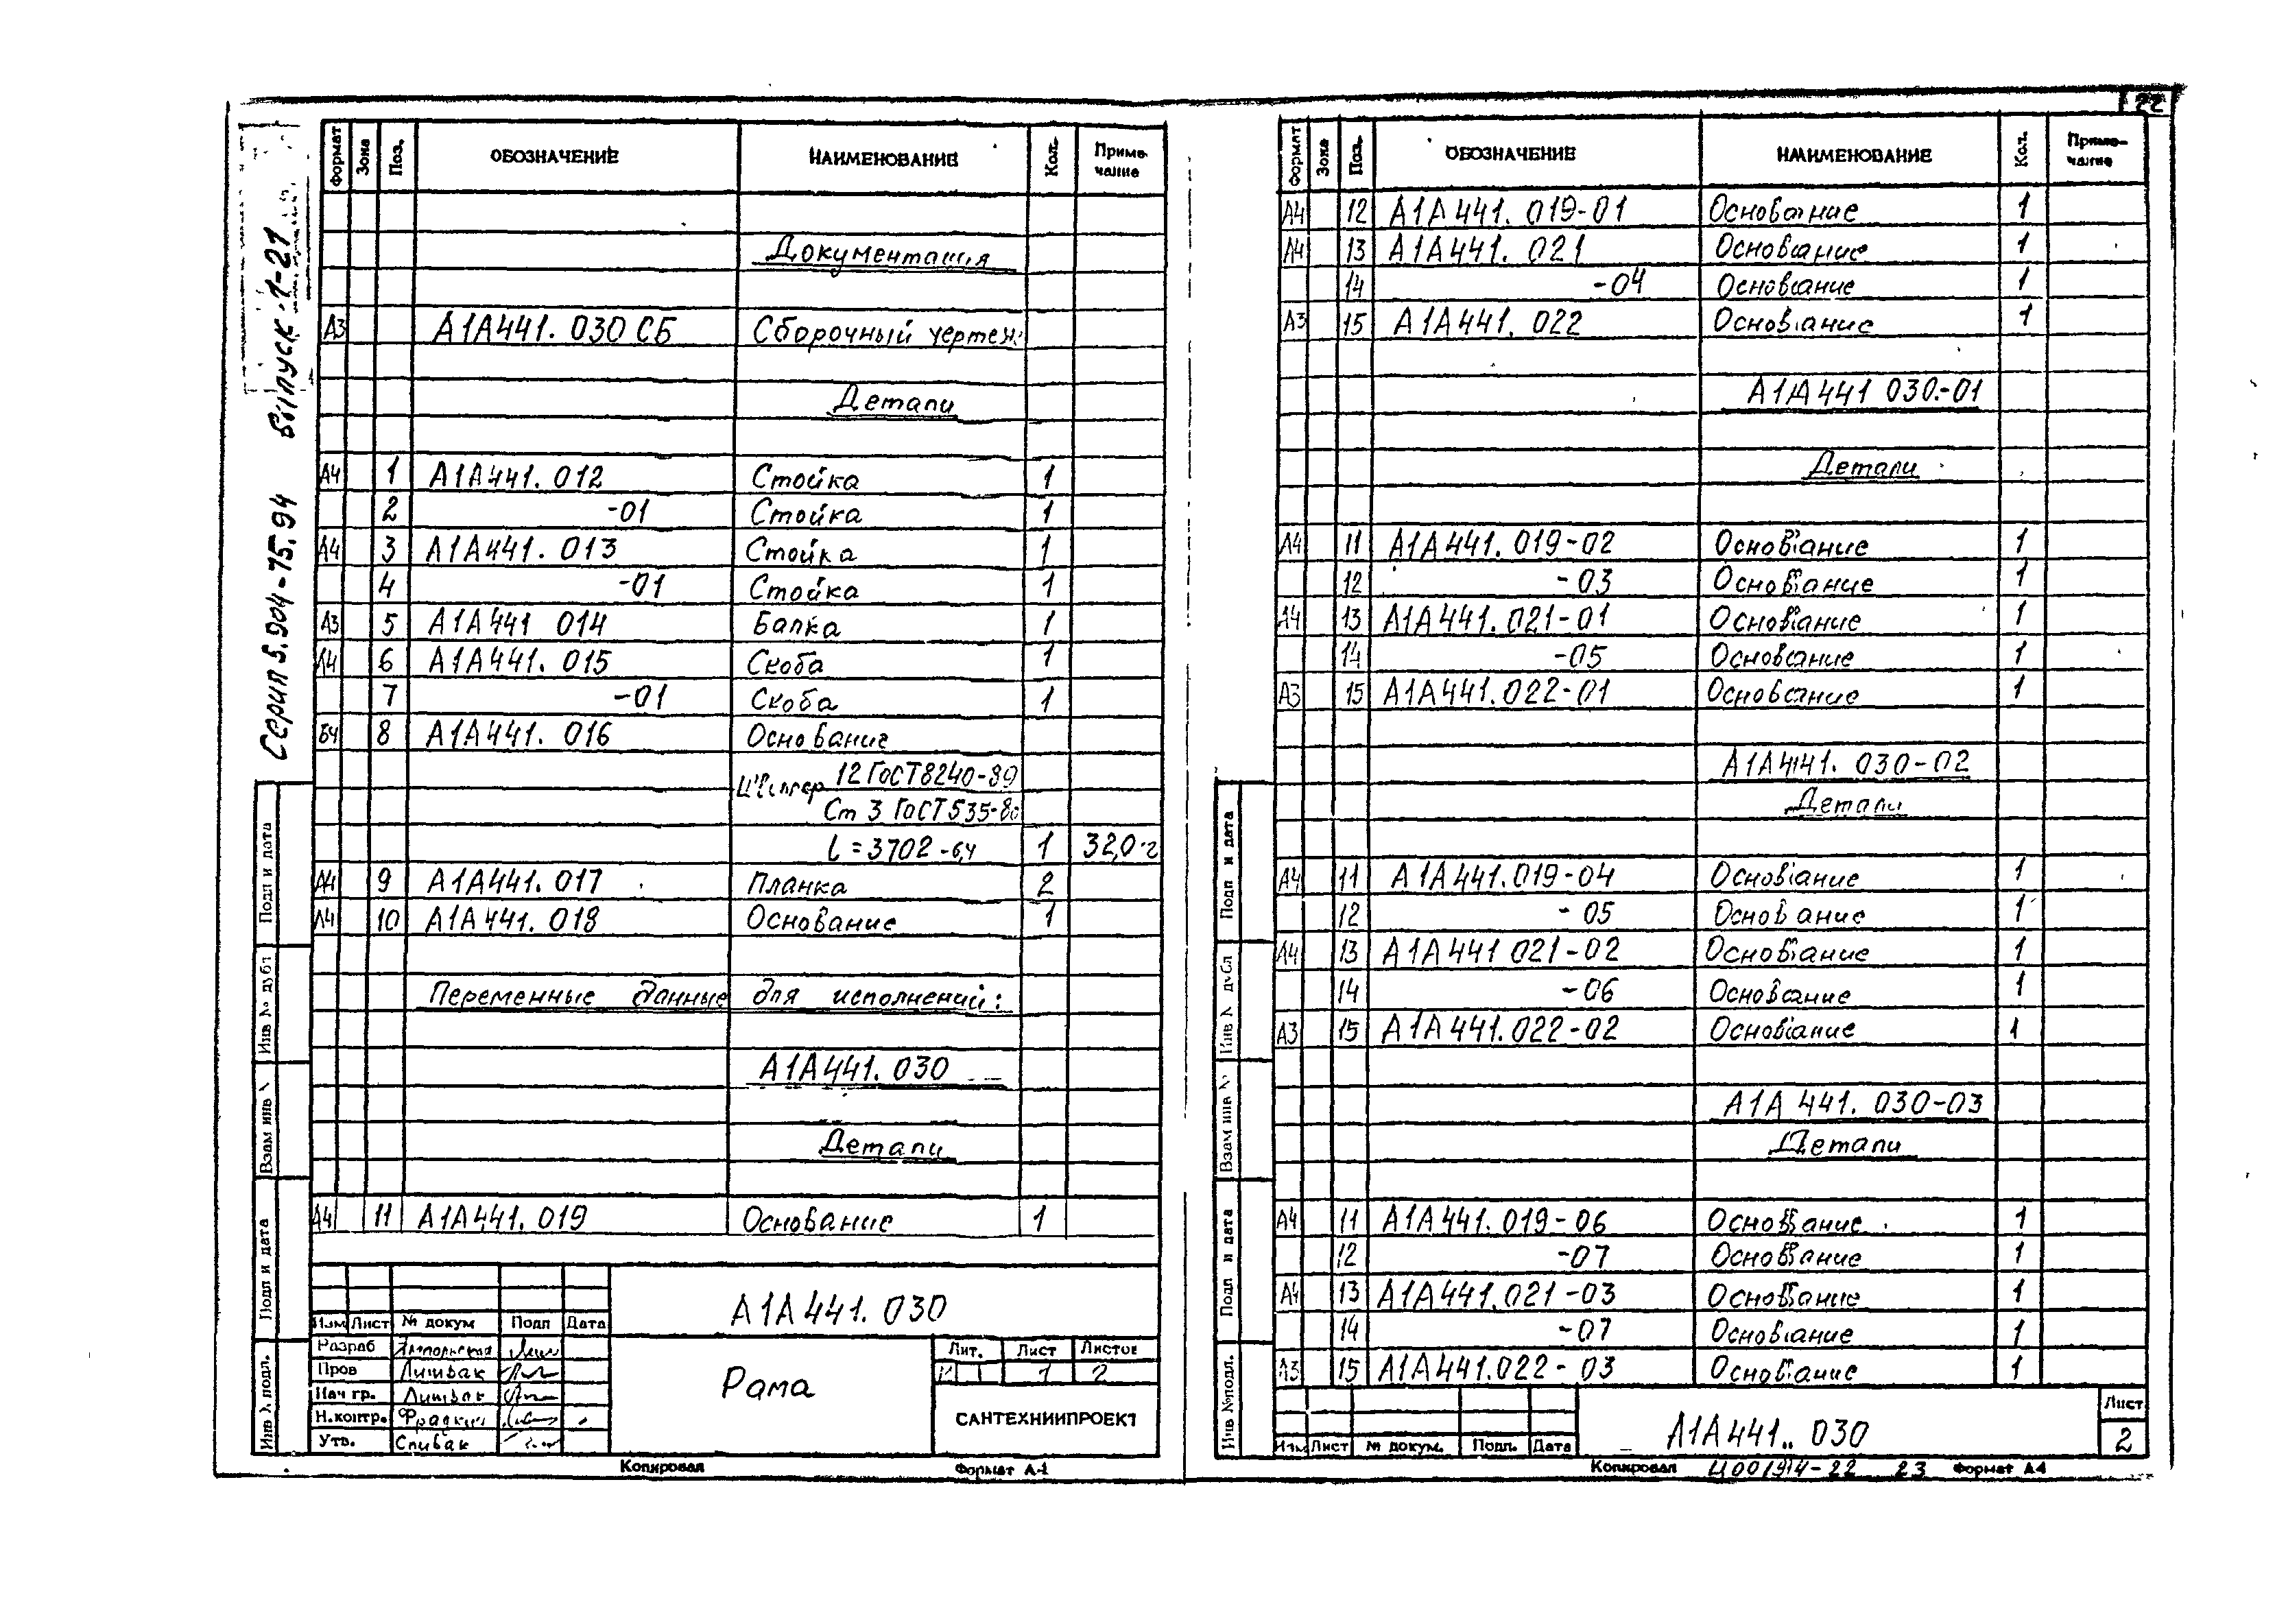 22
Серия 5.904-75.94 Выпуск 1-21
Формат Зона Поз. ОБОЗНАЧЕНИЕ НАИМЕНОВАНИЕ Кол. Приме-
чание
Документация
А3 А1А441.030 СБ Сборочный чертеж
Детали
А4 1 А1А441.012 Стойка 1
2 -01 Стойка 1
А4 3 А1А441.013 Стойка 1
4 -01 Стойка 1
А3 5 А1А441 014 Балка 1
А4 6 А1А441.015 Скоба 1
7 -01 Скоба 1
БЧ 8 А1А441.016 Основание
Швеллер 12 ГОСТ 8240-89
Ст 3 ГОСТ 535-88
L = 3702 -6,4 1 32,0
А4 9 А1А441.017 Планка 2
А4 10 А1А441.018 Основание 1
Переменные данные для исполнений:
А1А441.030
Детали
А4 11 А1А441.019 Основание 1
А1А441.030
Изм Лист № докум Подп Дата
Разраб Ямпольская
Пров Литвак
Нач гр. Литвак
Н.контр. Фрадкин
Утв. Спивак
Рама
Лит. Лист Листов
1 2
САНТЕХНИИПРОЕКТ
Копировал Формат А4
Подп и дата
Инв № дубл
Взам инв №
Подп и дата
Инв № подл.
Формат Зона Поз. ОБОЗНАЧЕНИЕ НАИМЕНОВАНИЕ Кол. Приме-
чание
А4 12 А1А441.019-01 Основание 1
А4 13 А1А441.021 Основание 1
14 -04 Основание 1
А3 15 А1А441.022 Основание 1
А1А441 030-01
Детали
А4 11 А1А441.019-02 Основание 1
12 -03 Основание 1
А4 13 А1А441.021-01 Основание 1
14 -05 Основание 1
А3 15 А1А441.022-01 Основание 1
А1А441.030-02
Детали
А4 11 А1А441.019-04 Основание 1
12 -05 Основание 1
А4 13 А1А441 021-02 Основание 1
14 -06 Основание 1
А3 15 А1А441.022-02 Основание 1
А1А 441.030-03
Детали
А4 11 А1А441.019-06 Основание 1
12 -07 Основание 1
А4 13 А1А441.021-03 Основание 1
14 -07 Основание 1
А3 15 А1А441.022-03 Основание 1
Изм Лист № докум. Подп. Дата
А1А441.. 030
Лист
2
Копировал Ц00194-22 23 Формат А4
Подп и дата
Инв № дубл
Взам инв №
Подп и дата
Инв №подл.